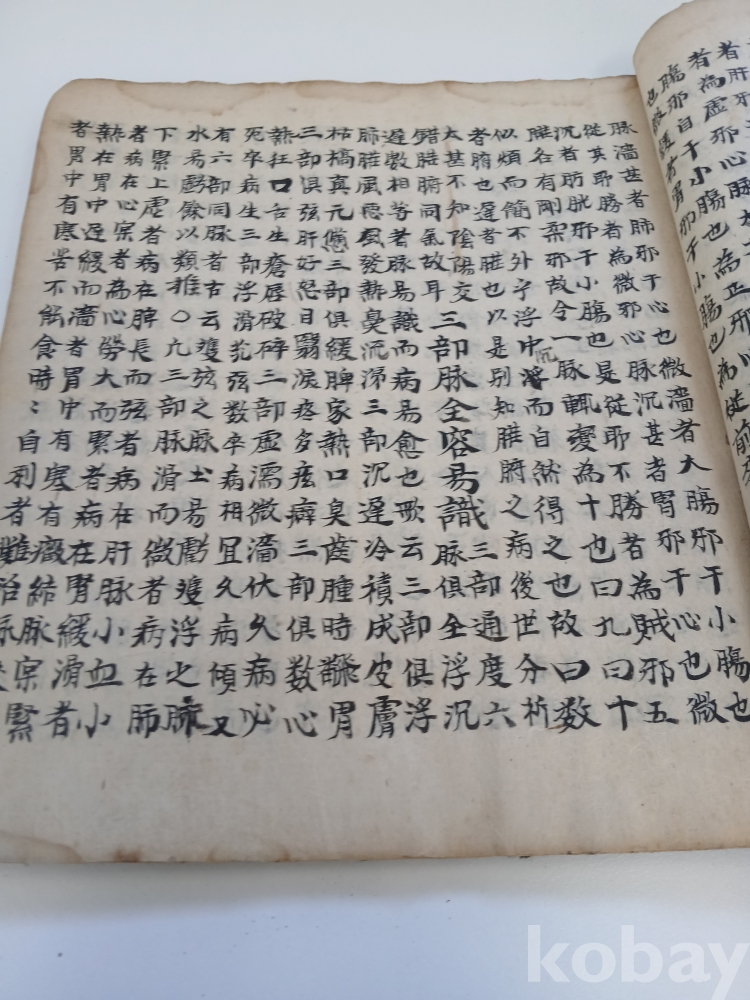 者為虛邪心脉
膓邪自干小膓也為正邪
也微緩者胃邪干小膓也為從前
脉濇甚者肺邪干心也微濇者大膓邪干小膓也
從其耶勝者為微邪心脉沉甚者腎邪干心也微
沉者肪胱邪干小膓也是從耶不勝者為賊邪五
臓各有剛柔邪故令一脉輒變為十也曰九曰十
似煩而簡不外乎浮中沉而自然得之也故曰数
者腑也遲者臓也以是别知臓腑之病後世分祈
太甚不知陰陽交
錯臓腑同氣故耳
三部脉全容易識
三部通度六
脉俱全浮沉
遲數相等者脉易識而病易愈也歌云三部俱浮
肺臓風惡風發熱臭流涕三部沉遲冷積成皮膚
枯槁真元憊三部俱緩脾家熱口臭齒腫時胃
三部俱弦肝好忍目翳淚疼多痃癖三部俱数心
熱狂口舌生瘡唇破碎三部虛濡微濇伏久病必
死卒病生三部浮滑芤弦数卒病相冝久病傾又
有六部同脉者古云雙弦之脉土易虧雙浮之脉
水易虧餘以類推○凡三部脉滑而微者病在肺
下緊上虛者病在脾長而弦者病在肝脉小血小
者病在心宗者為心勞大而緊者病在腎緩滑者
熱在胃中遲緩而濇者胃中有寒有癥結脉宗緊
者胃中有寒苦不能食時〻自利者難治
kobay